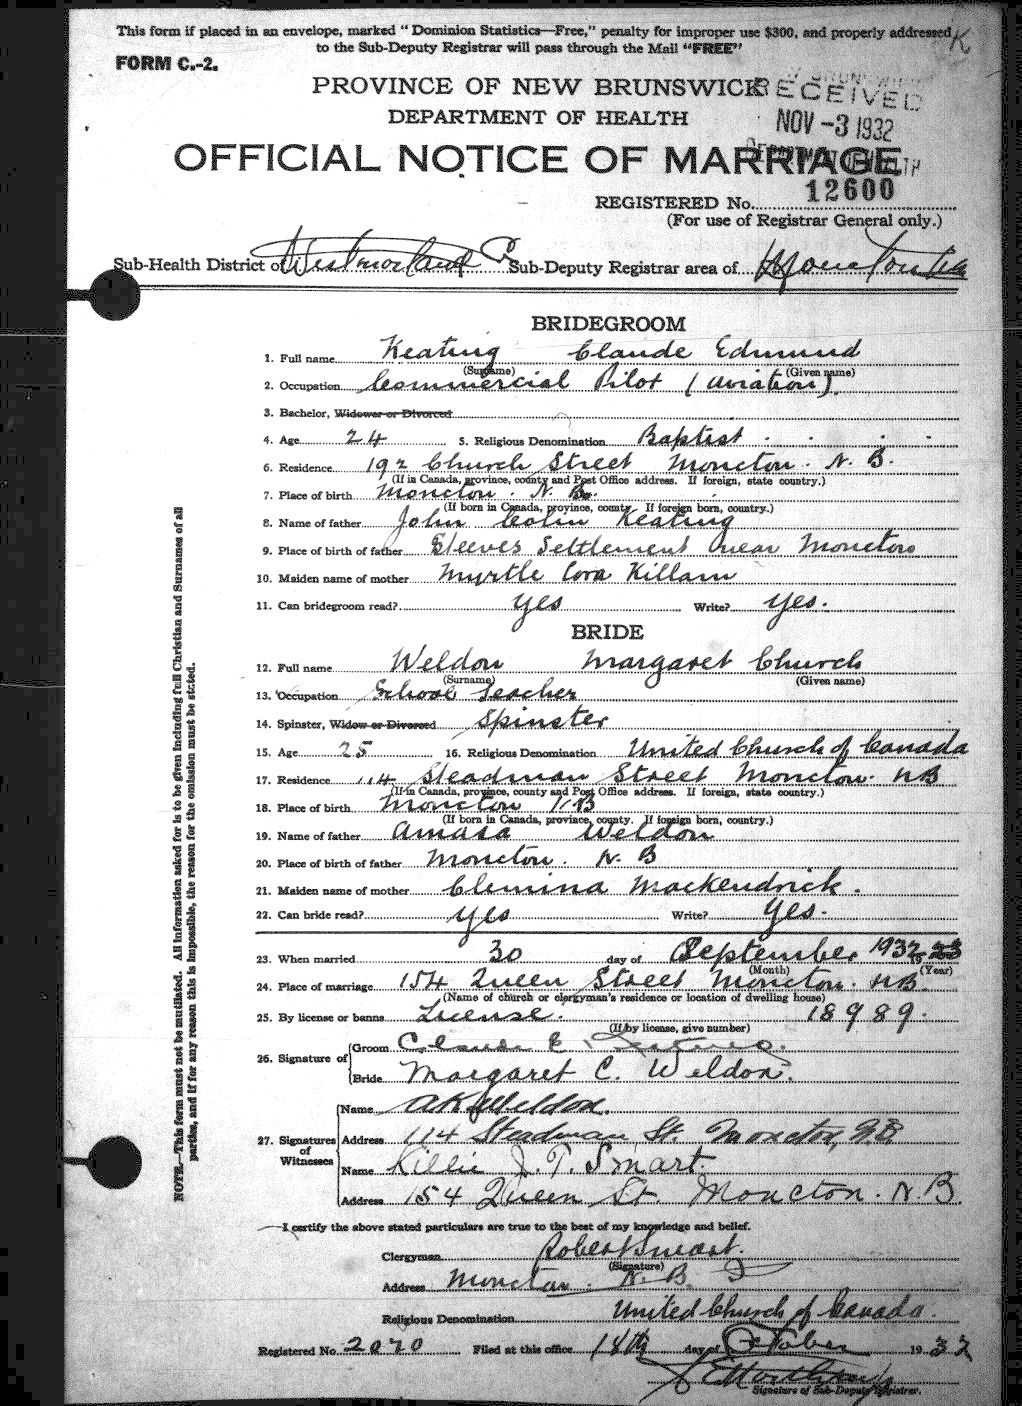 This form if placed in an envelope, marked "Dominion Statistics—Free," penalty for improper use $300, and properly addressed K
to the Sub-Deputy Registrar will pass through the Mail "FREE"
FORM C.-2.
PROVINCE OF NEW BRUNSWICK
RECEIVED
DEPARTMENT OF HEALTH
NOV -3 1932
OFFICIAL NOTICE OF MARRIAGE
DEPARTMENT OF HEALTH
REGISTERED No. 12600
(For use of Registrar General only.)
Sub-Health District of Westmorland Co Sub-Deputy Registrar area of Moncton
BRIDEGROOM
1. Full name Keating Claude Edmund
(Surname) (Given name)
2. Occupation Commercial Pilot (aviation)
3. Bachelor, Widower or Divorced
4. Age 24 5. Religious Denomination Baptist
6. Residence 192 Church Street Moncton. N. B.
(If in Canada, province, county and Post Office address. If foreign, state country.)
7. Place of birth Moncton. N. B.
(If born in Canada, province, county. If foreign born, country.)
8. Name of father John Colin Keating
9. Place of birth of father Steeves Settlement near Moncton
10. Maiden name of mother Myrtle Cora Killam
11. Can bridegroom read? yes Write? yes.
BRIDE
12. Full name Weldon Margaret Church
(Surname) (Given name)
13. Occupation School Teacher
14. Spinster, Widow or Divorced Spinster
15. Age 25 16. Religious Denomination United Church of Canada
17. Residence 114 Steadman Street Moncton. NB
(If in Canada, province, county and Post Office address. If foreign, state country.)
18. Place of birth Moncton NB
(If born in Canada, province, county. If foreign born, country.)
19. Name of father Amasa Weldon
20. Place of birth of father Moncton. N. B
21. Maiden name of mother Clemina Mackendrick.
22. Can bride read? yes Write? yes.
23. When married 30 day of September 1932
(Month) (Year)
24. Place of marriage 154 Queen Street Moncton. NB.
(Name of church or clergyman's residence or location of dwelling house)
25. By license or banns License. 18989.
(If by license, give number)
26. Signature of Groom Claude E. Keating.
Bride Margaret C. Weldon.
27. Signatures of Witnesses
Name Weldon.
Address 114 Steadman St. Moncton, N.B.
Name J. T. Smart.
Address 154 Queen St. Moncton. N. B.
I certify the above stated particulars are true to the best of my knowledge and belief.
Clergyman Robert Smart.
(Signature)
Address Moncton. N. B.
Religious Denomination United Church of Canada.
Registered No. 2070 Filed at this office 18th day of October 1932
Signature of Sub-Deputy Registrar.
NOTE.—This form must not be mutilated. All information asked for is to be given including full Christian and Surnames of all
parties, and if for any reason this is impossible, the reason for the omission must be stated.